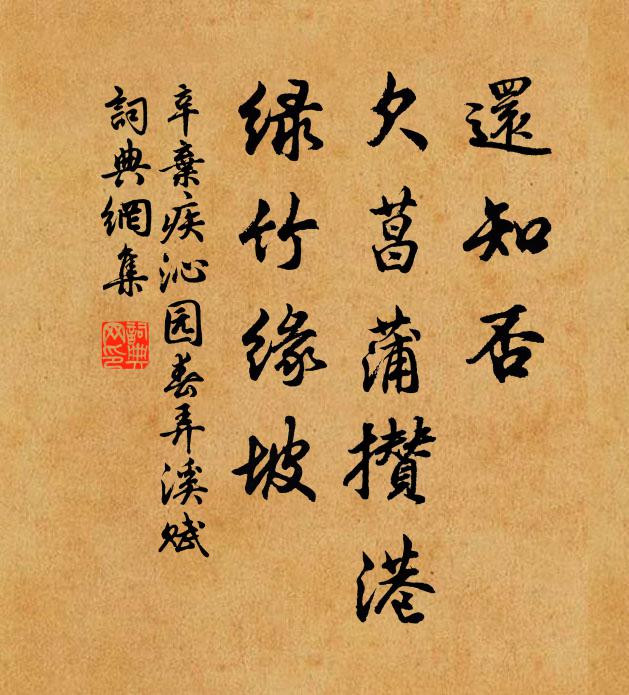 還知否
欠菖蒲攢港
緑竹緣坡
辛棄疾沁园春弄溪赋
詞典網集
詞典网印